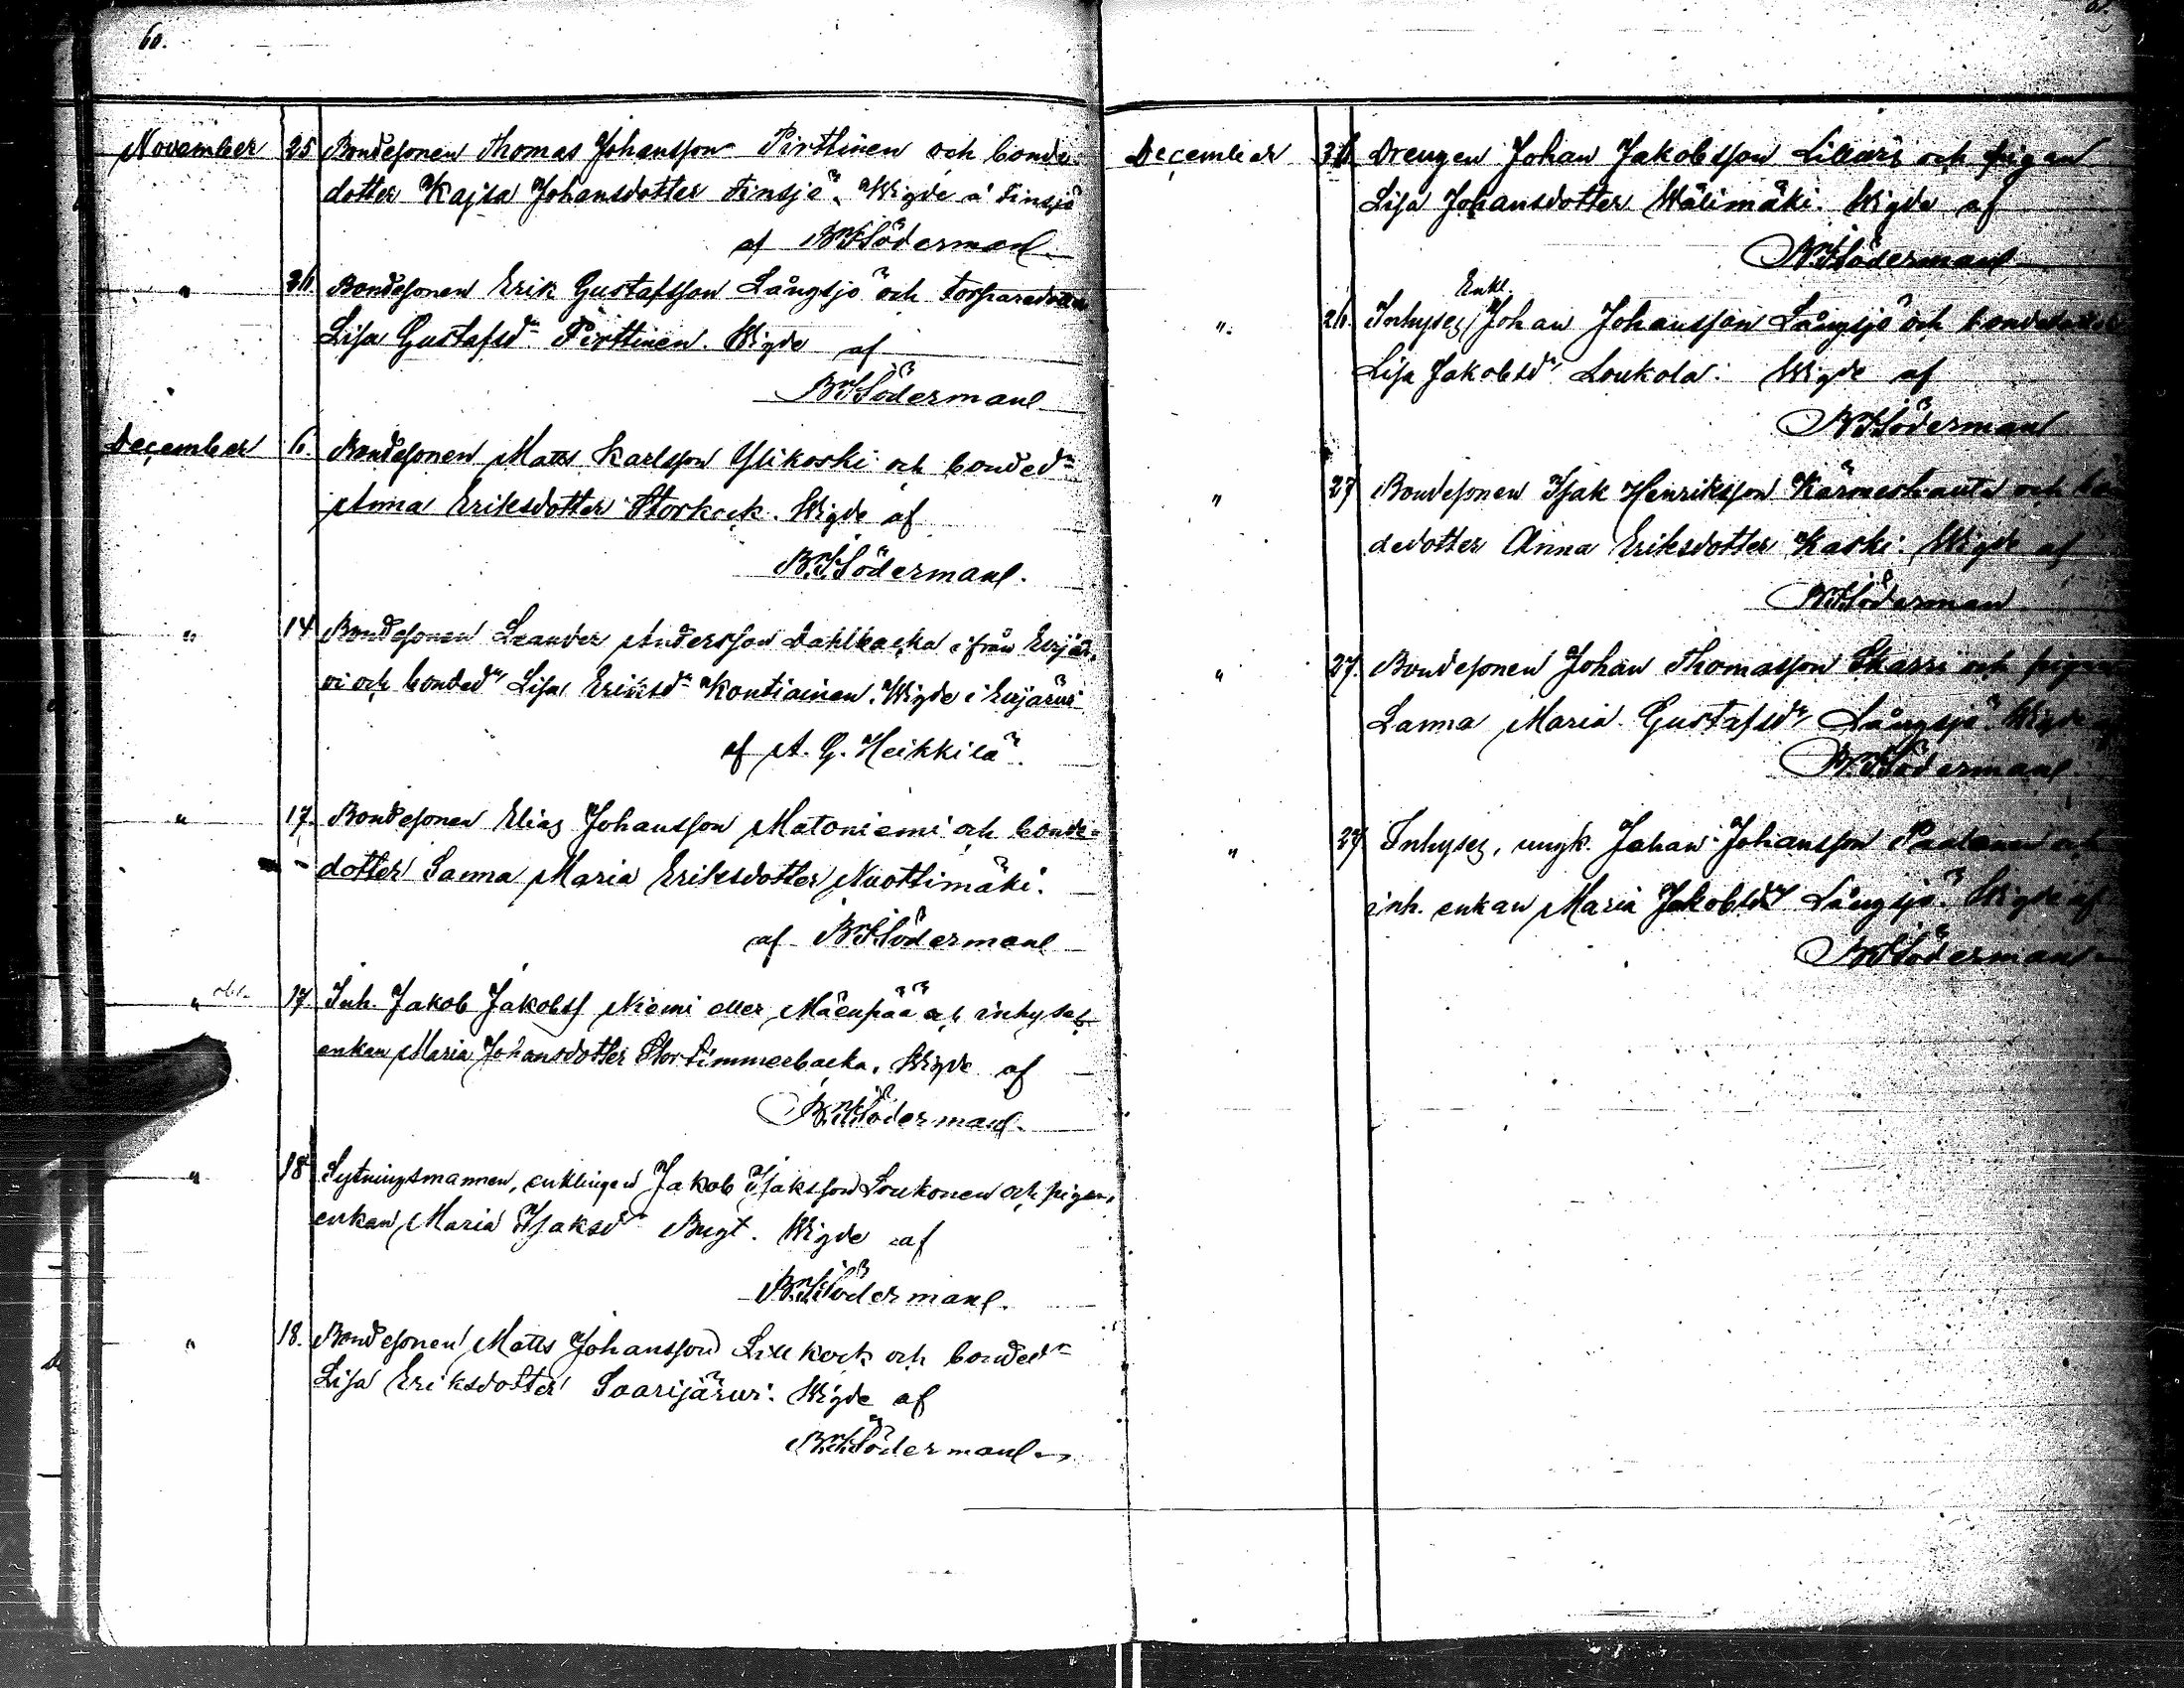 60.
November 25 Bondesonen Thomas Johansson Pirttinen och bonde
dotter Kajsa Johansdotter Finsjö. Wigde i Finsjö
af B. H. Söderman.
" 26. Bondesonen Erik Gustafsson Långsjö och torparedotter
Lisa Gustafsdr Pirttinen. Wigde af
Söderman
December 6. Bondesonen Matts Karlsson Ylikoski och bondedr
Anna Eriksdotter Storkock. Wigde af
Söderman.
" 14 Bondesonen Leander Andersson Dahlbacka ifrån Evijär-
vi och bondedr Lisa Eriksdr Kontiainen. Wigde i Evijärvi
af A. G. Heikkilä.
" 17. Bondesonen Elias Johansson Matoniemi och bonde-
dotter Sanna Maria Eriksdotter Nuottimäki.
af Söderman
" 17. Inh. Jakob Jakobss Niemi eller Mäenpää och inhyses
enkan Maria Johansdotter Stortimmerbacka. Wigde af
Söderman.
" 18 Sytningsmannen, enklingen Jakob Isaksson Loukonen och pigan,
enkan Maria Isaksdr Bugt. Wigde af
Söderman.
" 18. Bondesonen Matts Johansson Lillkock och bondedr
Lisa Eriksdotter Saarijärvi. Wigde af
Söderman.
December 26 Drengen Johan Jakobsson Lillars och pigan
Lisa Johansdotter Wälimäki. Wigde af
Söderman
Enkl.
" 26. Inhyses, Johan Johansson Långsjö och bondedotter
Lisa Jakobsdr Loukola. Wigde af
Söderman
" 27 Bondesonen Isak Henriksson Kärmeshauta och bon
dedotter Anna Eriksdotter Kaski. Wigde af
Söderman
" 27. Bondesonen Johan Thomasson Skarri och pigan
Sanna Maria Gustafsdr Långsjö. Wigde
Söderman
" 27 Inhyses, ungk. Johan Johansson och
inh. enkan Maria Jakobsdr Långsjö. Wigde af
Söderman